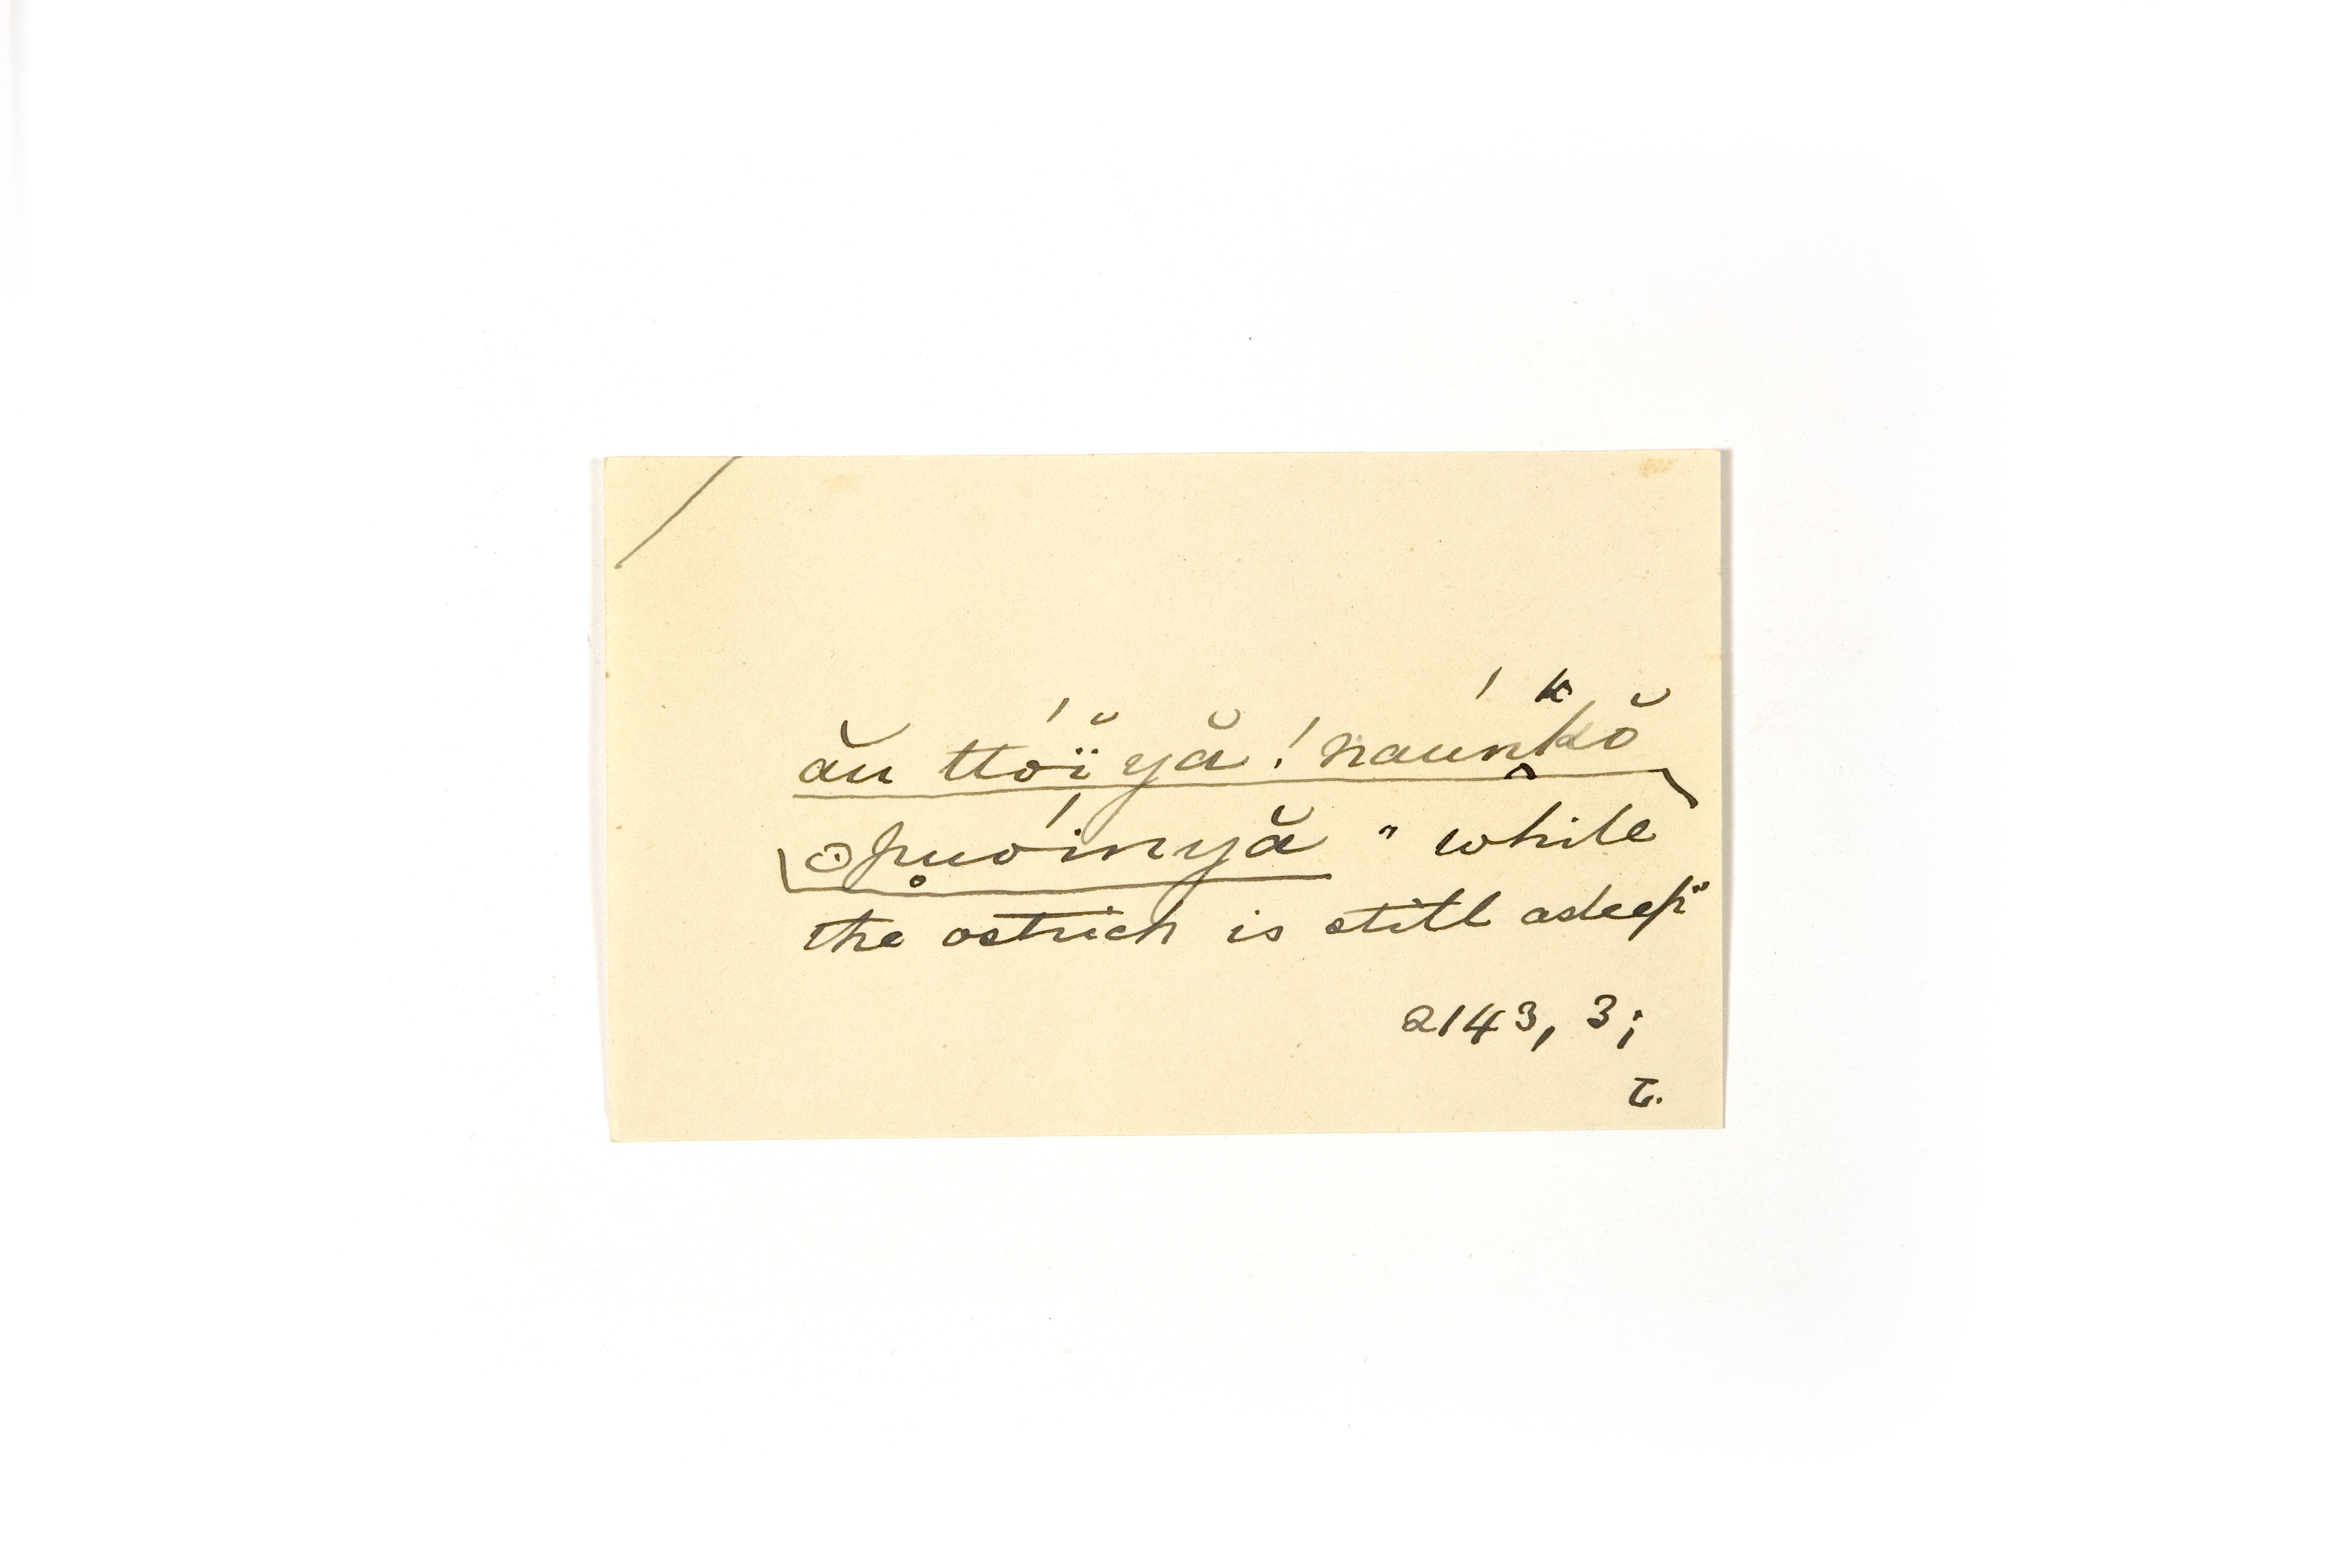 ău ttóĭ yă ! naúnkŏ
ʘpu̥óinyă " while
the ostrich is still asleep"
2143, 3;